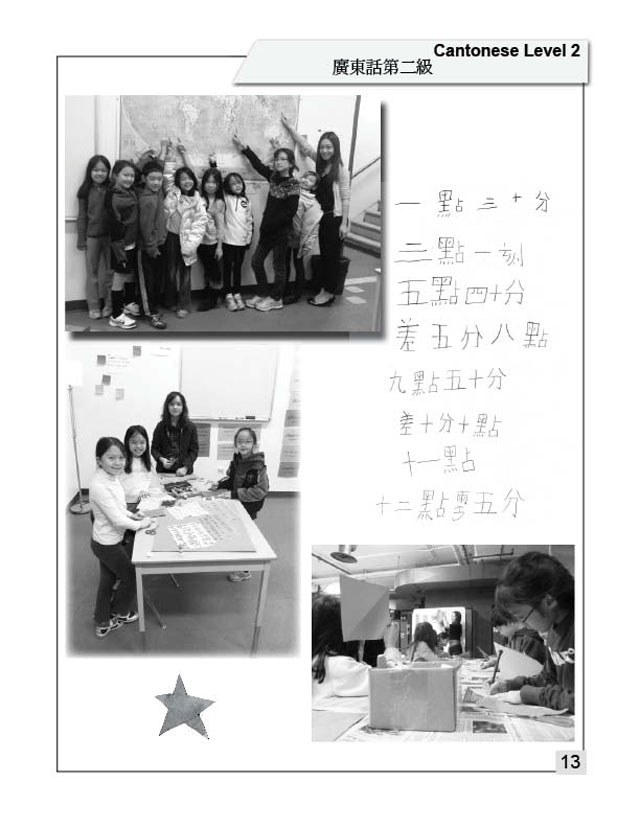 Cantonese Level 2
廣東話第二級
一點三十分
三點一刻
五點四十分
差五分八點
九點五十分
差十分十點
十一點
十二點零五分
13